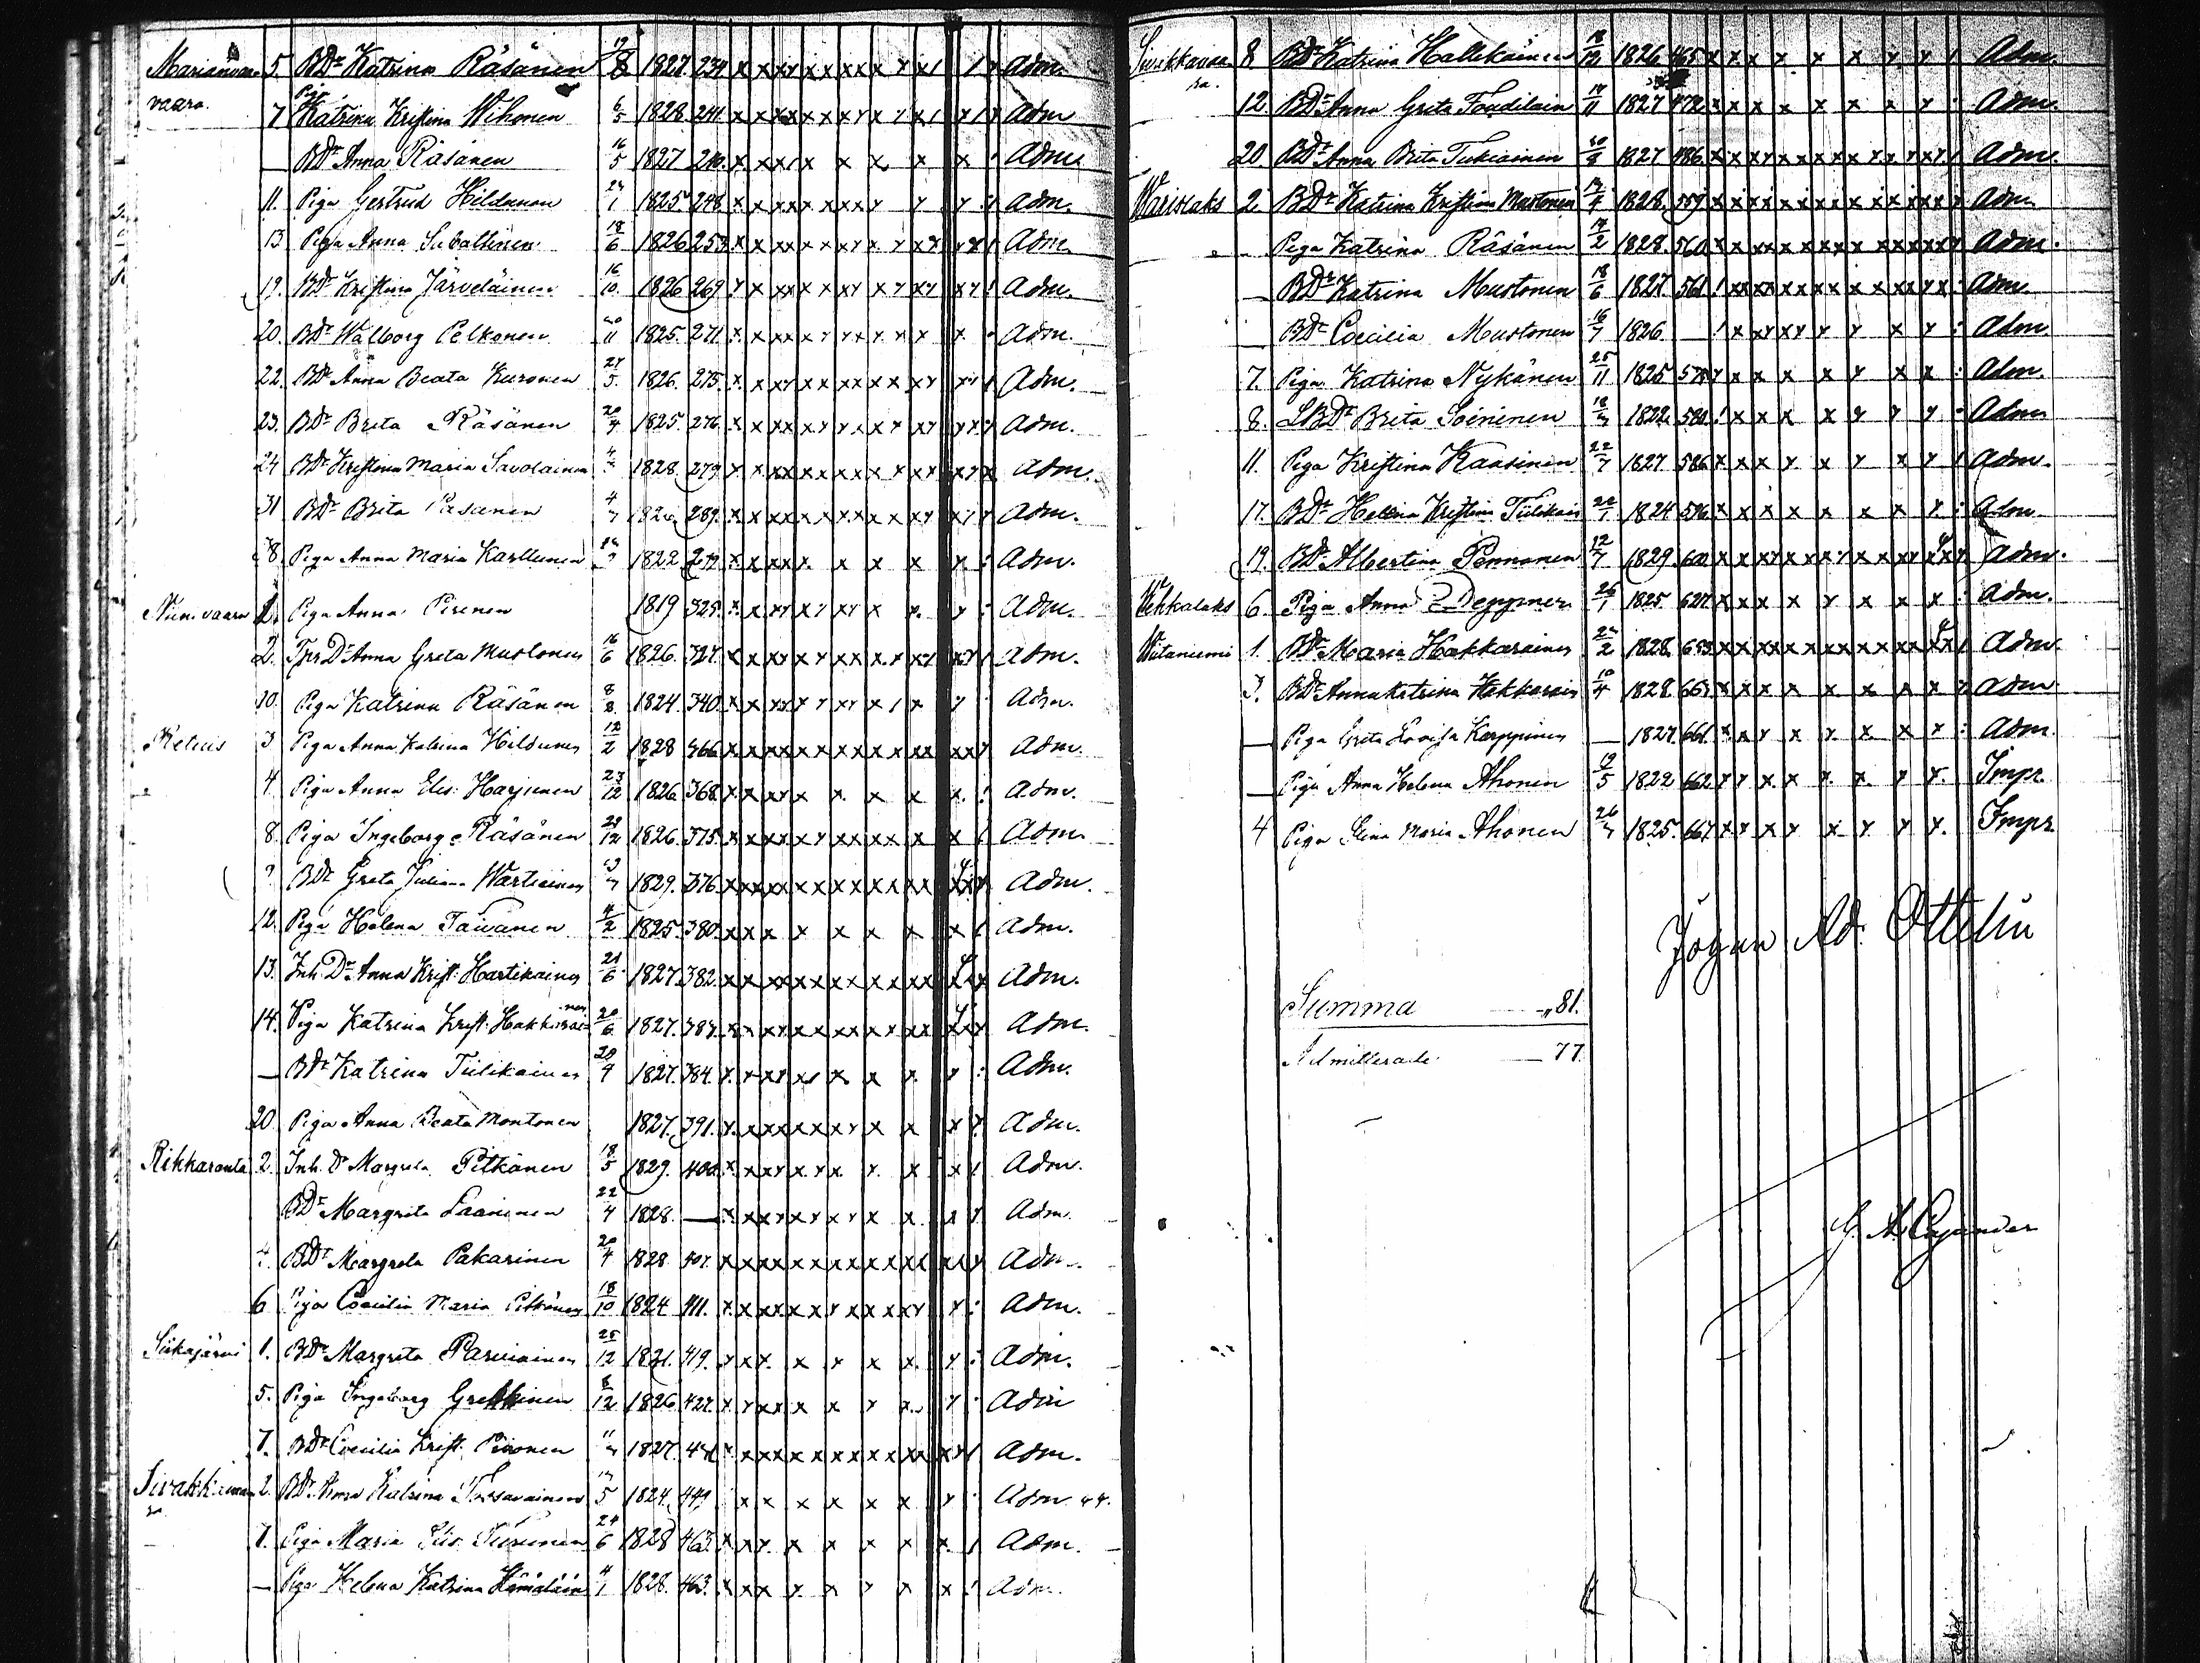 Marianvaa 5. BDr Katrina Räsänen 19/8 1827. 234 x x xx x x x x x x x x / / x Adm.
vaara. 7 Piga Katrina Kristina Wihonen 6/5 1828. 241 x x xx x x x x x x x x / x / x Adm
— BDr Anna Räsänen 16/5 1827 240. x x x x x x x x x x Adm.
11. Piga Gertrud Hildunen 1825. 248. x x xx x x x x x x x x Adm.
13 Piga Anna 18/6 1826 253 x x xx x x x x x x x x x x / Adm.
19. BDr Kristina Järveläinen 16/10 1826 269 x x xx x x x x x x x x x x Adm.
20. BDr Walborg Pelkonen 11 1825. 271 x x x x x x x x x x x x Adm.
22. BDr Anna Beata Kuronen 27/5. 1826. 275. x x xx x x x x x x x x x Adm.
23. BDr Brita Räsänen 20/4 1825. 276 x x x x x x x x x x x x x x Adm.
24 BDr Kristina Maria Savolainen 1828. 279 x x xx x x x x x x x x x x Adm.
31 BDr Brita Räsänen 4/7 1826 289. x x xx x x x x x x x x x x Adm.
38. Piga Anna Maria Karttunen 1822 x x x x x x x x x x Adm.
Niinivaara 1. Piga Anna Pirenen 1819 325. x x xx x x x x x x x Adm.
2. Anna Greta Mustonen 16/6 1826. 327. x x xx x x x x x x x x x / Adm.
10. Piga Katrina Räsänen 8/8 1824. 340. x x xx x x x x / x x Adm.
Retuis 3 Piga Anna Katrina Hildunen 12/2 1828 366 x x xx x x x x x x x x x x Adm.
4 Piga Anna Elis. Harjunen 23/12 1826 368. x x x x x x x x x Adm.
8. Piga Ingeborg Räsänen 28/12 1826. 375. x x x x x x x x x x x x / Adm.
BDr Greta Juliana Wartiainen 1829. 376. x x xx x x x x x x x x x x Adm.
12. Piga Helena Taivanen 4/2 1825. 380. x x x x x x x x / Adm.
13. Inh. Dr Anna Krist. Hartikainen 21/6 1827. 382. x x xx x x x x x x x x x x Adm.
14. Piga Katrina Krist. Hakkarainen 20/6 1827. 383. x x xx x x x x x x x x x x Adm.
— BDr Katrina Tiilikainen 28/4 1827. 384. x x xx x x x x x Adm.
20 Piga Anna Beata Montonen 1827. 391. x x x x x x x x x x x Adm.
Rikkaranta 2. Inh. Dr Margreta Pitkänen 18/5 1829. 400. x x x x x x x x x x / Adm.
BDr Margreta Laaninen 22/4 1828. — x x x x x x x x x x x Adm.
4. BDr Margreta Pakarinen 20/4 1828. 407. x x xx x x x x x x x x x x Adm.
6 Piga Coecilia Maria Pitkänen 18/10 1824 411. x x x x x x x x x x x x Adm.
Siikajärvi 1. BDr Margreta Parviainen 25/12 1821. 419. x x x x x x x x Adm.
5. Piga Ingeborg 8/12 1826 427. x x x x x x x x x Adm
7. BDr Coecilia Krist. Piironen 1827. x x x x x x x x x x x x x / Adm.
Sivakkavaara 2. BDr Anna Katrina Tossavainen 1824. 449 x x x x x x x Adm. 44.
7. Piga Maria Elis. Turunen 24/6 1828 463. x x x x x x x x / Adm.
— Piga Helena Katrina Hämäläin 4/1 1828. 463. x x x x x x x x Adm.
Sivakkavaara. 8. BDr Katrina Hallikainen 18/12 1826 465 x x x x x x x x / Adm.
12. BDr Anna Greta 14/11 1827 472. x x x x x x x x Adm.
20. BDr Anna Brita Tukiainen 1827 486. x x x x x x x x x x x x x / Adm.
Warislaks 2. BDr Katrina Kristina Mustonen 1828. 559 x x x x x x x x x x x x x Adm
- Piga Katrina Räsänen 1828. 560 x x x x x x x x x x x x x Adm.
— BDr Katrina Mustonen 18/6 1827. 561. x x x x x x x x x x x x Adm.
— BDr Coecilia Mustonen 16/7 1826. — / x x x x x x x x Adm.
7. Piga Katrina Nykänen 25/11 1825 x x x x x x x Adm.
8. BDr Brita Soininen 1822. 580. x x x x x x x Adm
11. Piga Kristina Kaasinen 22/7 1827 586 x x x x x x x x / Adm.
17. BDr Helena Kristina Tiilikain 1824 596 x x x x x x x x Adm
19. BDr Albertina Pennanen 12/7 1829. 600 x x x x x x x x x x x x x Adm.
Wehkalaks 6. Piga Anna Deppner 26/1 1825. 627. x x x x x x x x Adm.
Witaniemi 1. BDr Maria Hakkarainen 1828. x x x x x x x x x x x x x Adm.
3. BDr Anna Katrina Hakkarain 10/4 1828. x x x x x x x x x Adm.
— Piga Greta Lovisa Karppinen — 1827. 661. x x x x x x x x Adm.
— Piga Anna Helena Ahonen 19/5 1822 662. x x x x x x x x Impr.
4 Piga Maria Ahonen 1825. 667. x x x x x x x x Impr.
Johan Ad. Ottelin
Summa — 81.
Admitterade — 77.
Cajander